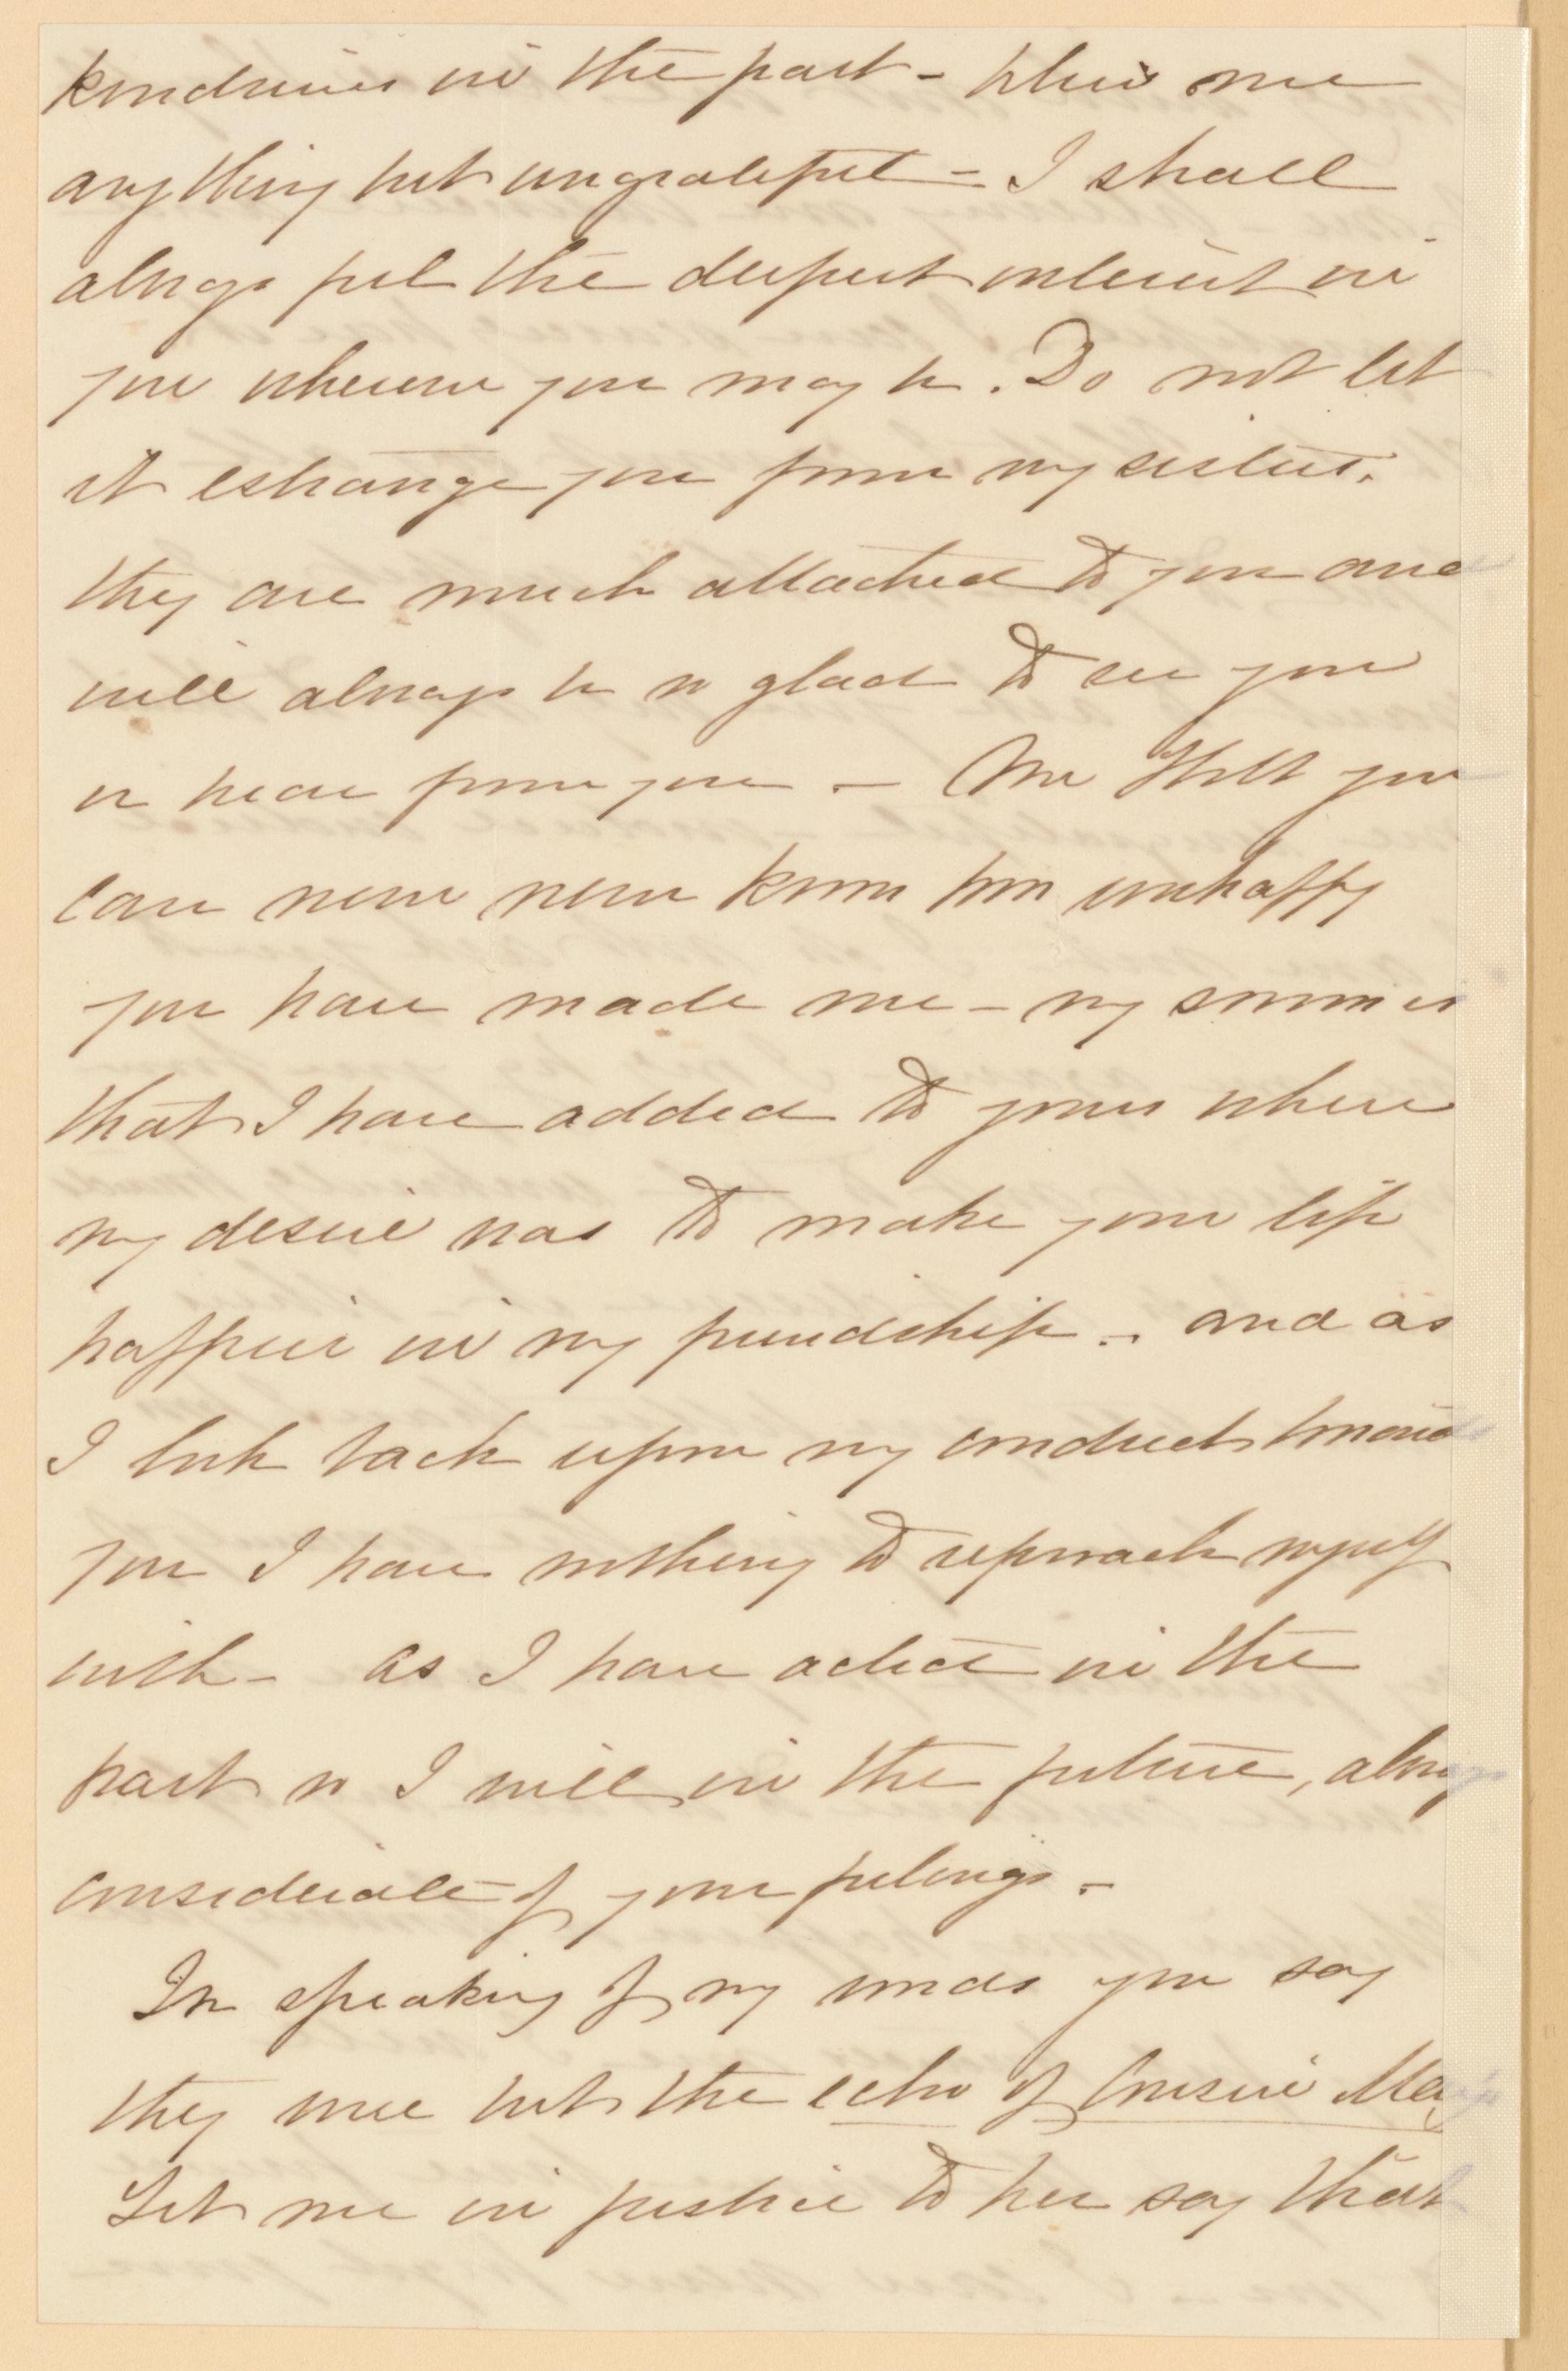 kindnesses in the past - think me
anything but ungrateful - I shall
always feel the deepest interest in
you wherever you may be. Do not let
it estrange you from my sisters.
they are much attached to you and
will always be so glad to see you
or hear from you - Mr Holt you
can never never know how unhappy
you have made me - my sorrow is
that I have added to yours where
my desire was to make your life
happier in my friendship - and as
I look back upon my conduct towards
you I have nothing to reproach myself
with - as I have acted in the
past so I will in the future, always
considerate of your feelings -
In speaking of my words you say
they were but the echo of Cousin Mary
Let me in justice to her say that